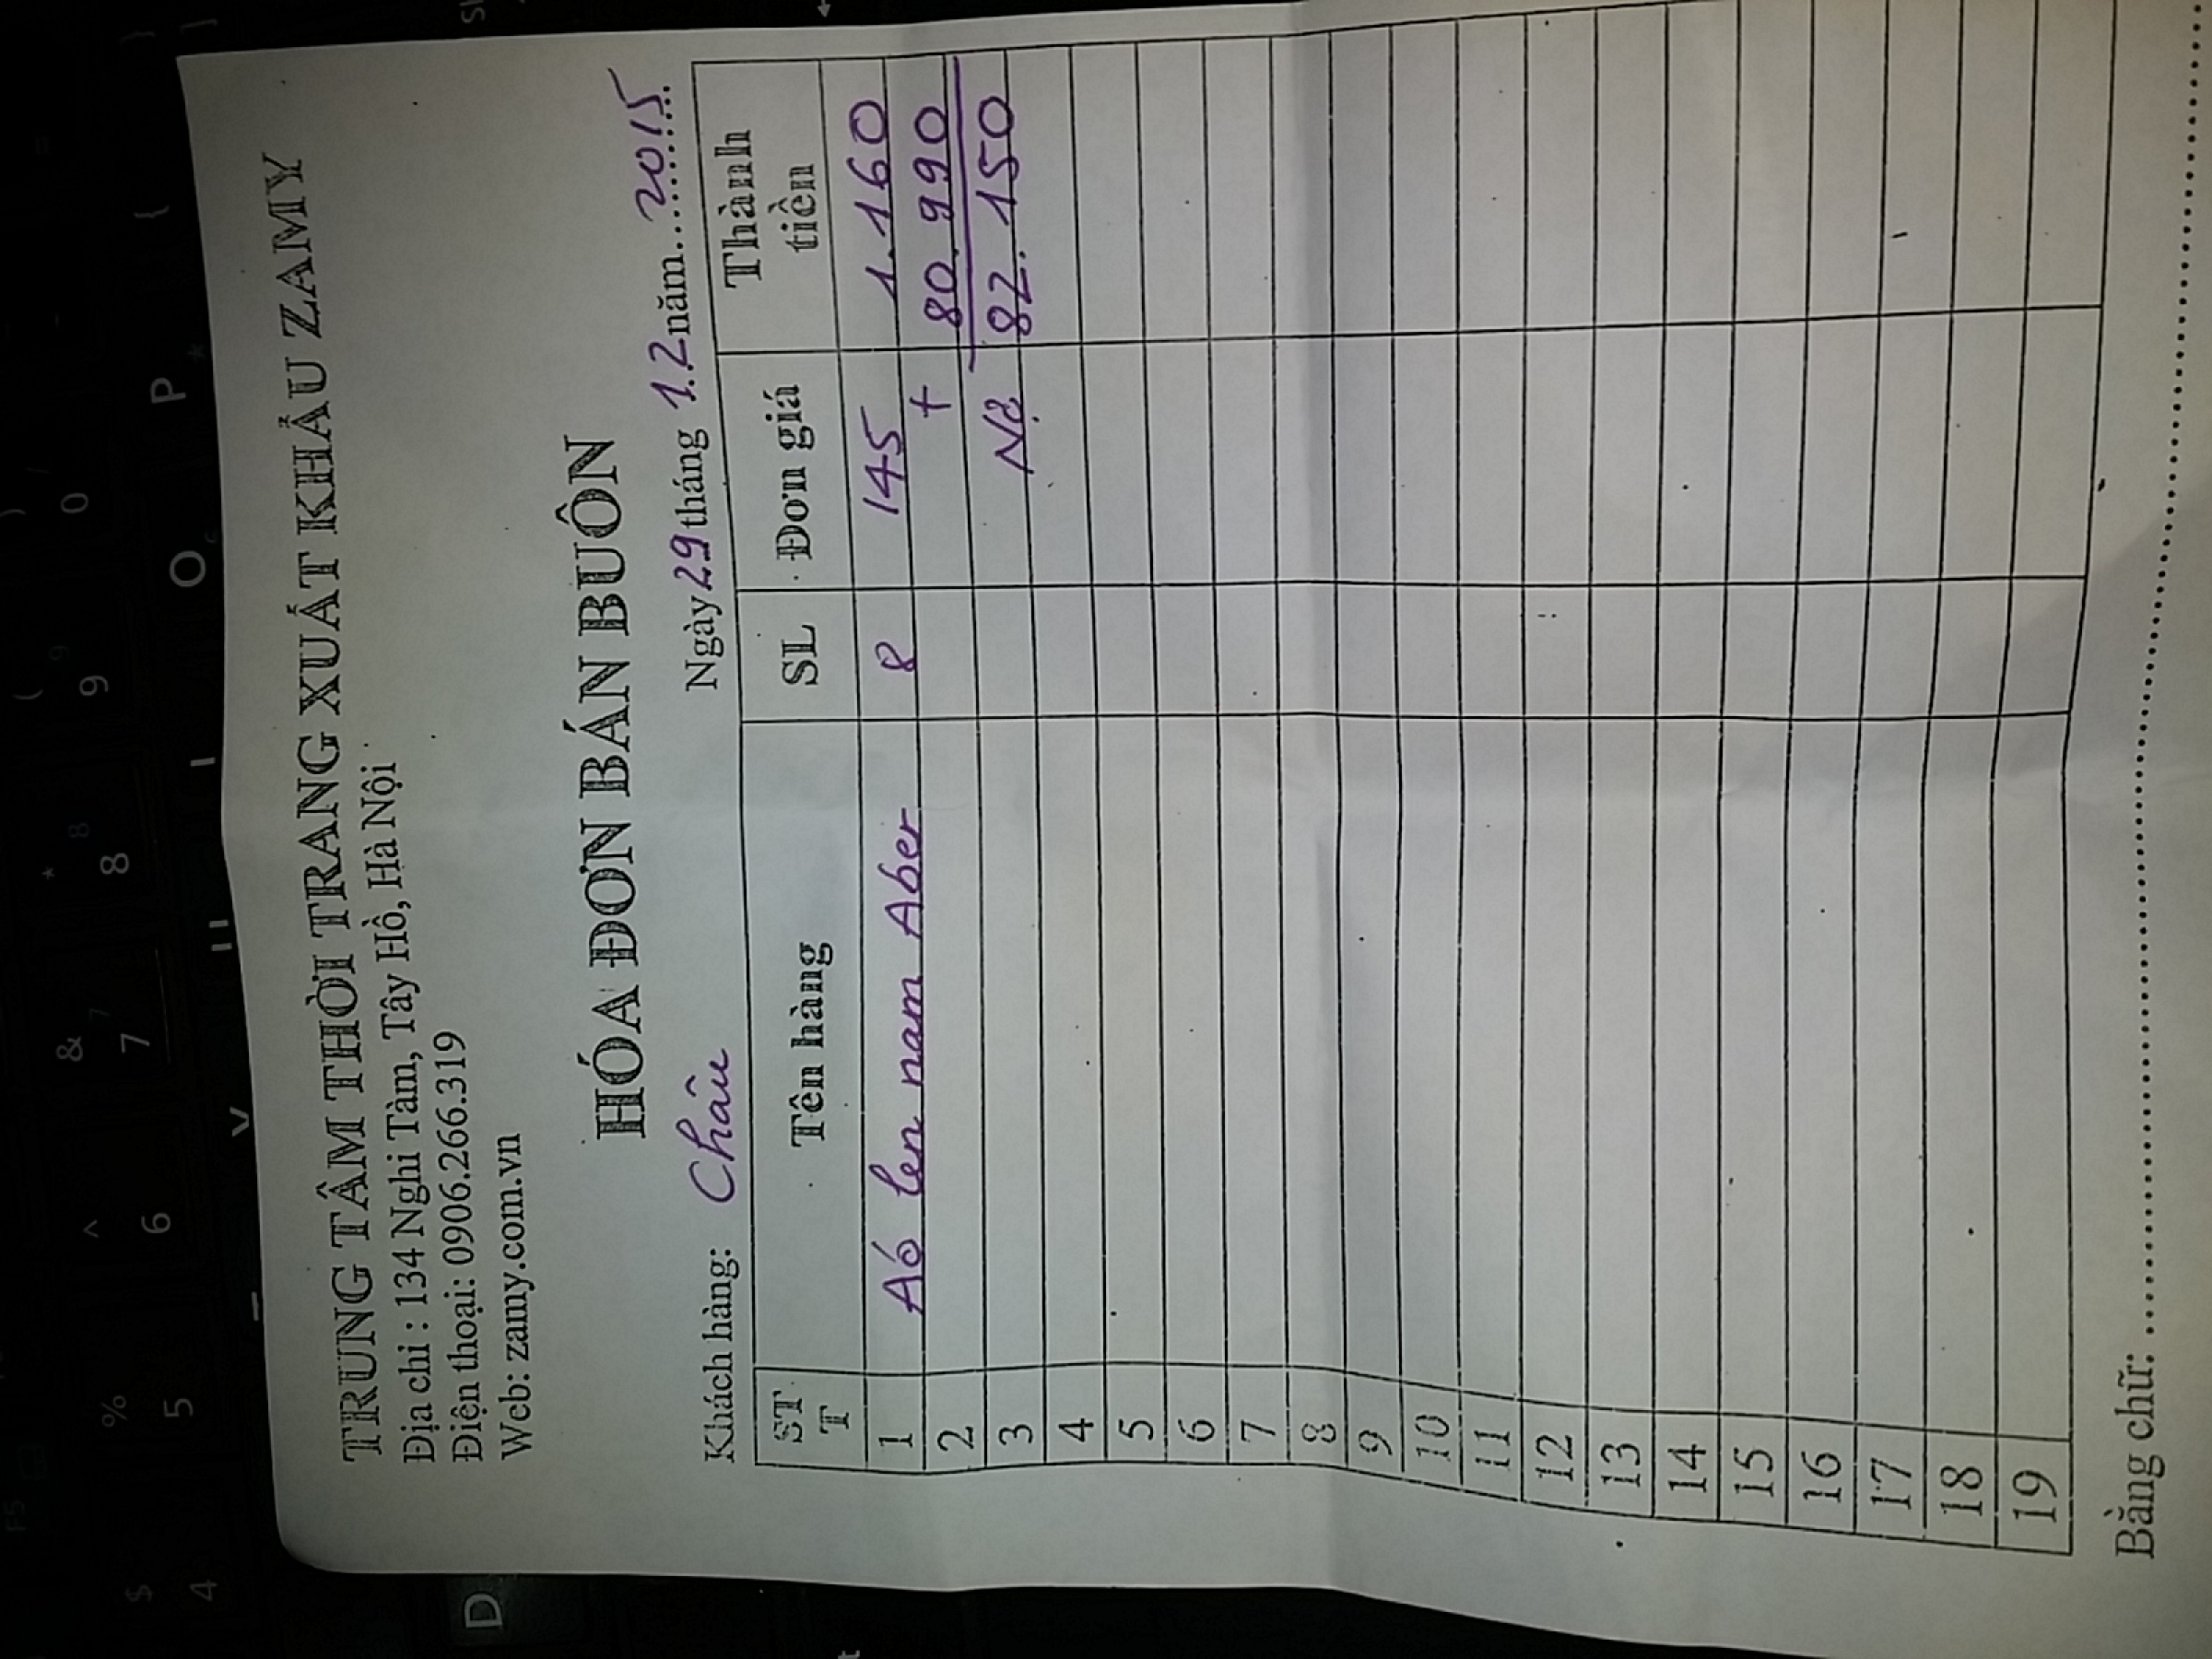 TRUNG TÂM THỜI TRANG XUẤT KHẨU ZAMY
Địa chỉ : 134 Nghi Tàm, Tây Hồ, Hà Nội
Điện thoại: 0906.266.319
Web: zamy.com.vn
HÓA ĐƠN BÁN BUÔN
Khách hàng: Châu Ngày 29 tháng 12 năm 2015
STT Tên hàng SL Đơn giá Thành tiền
1 Aó len nam Aber 8 145 1.160
2 + 80.990
3 Nợ 82.150
4
5
6
7
8
9
10
11
12
13
14
15
16
17
18
19
Bằng chữ: